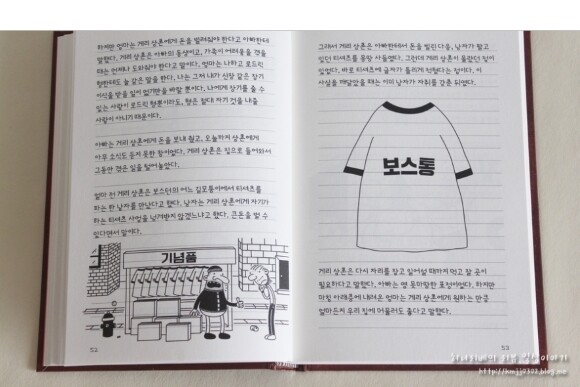 하지만 엄마는 게리 삼촌에게 돈을 빌려줘야 한다고 아빠한테
말했다. 게리 삼촌은 아빠의 동생이고, 가족이 어려움을 겪을
때는 언제나 도와줘야 한다고 말이다. 엄마는 나하고 로드릭
형한테도 늘 같은 말을 한다. 나는 그저 내가 신장 같은 장기
이식을 받을 일이 없기만을 바랄 뿐이다. 나에게 장기를 줄 수
있는 사람이 로드릭 형뿐이라도, 형은 절대 자기 것을 내줄
사람이 아니기 때문이다.
아빠는 게리 삼촌에게 돈을 보내 줬고, 오늘까지 삼촌에게
아무 소식도 듣지 못한 참이었다. 게리 삼촌은 집으로 들어와서
그동안 겪은 일을 털어놓았다.
얼마 전 게리 삼촌은 보스턴의 어느 길모퉁이에서 티셔츠를
파는 한 남자를 만났다고 했다. 남자는 게리 삼촌에게 자기가
하는 티셔츠 사업을 넘겨받지 않겠느냐고 했다. 큰돈을 벌 수
있다면서 말이다.
기념품
52
그래서 게리 삼촌은 아빠한테서 돈을 빌린 다음, 남자가 팔고
있던 티셔츠를 몽땅 사들였다. 그런데 게리 삼촌이 몰랐던 점이
있었다. 바로 티셔츠에 글자가 틀리게 적혔다는 점이다. 이
사실을 깨달았을 때는 이미 남자가 자취를 감춘 뒤였다.
보스통
게리 삼촌은 다시 자리를 잡고 일어설 때까지 먹고 잘 곳이
필요하다고 말했다. 아빠는 영 못마땅한 표정이었다. 하지만
마침 아래층에 내려온 엄마는 게리 삼촌에게 원하는 만큼
얼마든지 우리 집에 머물러도 좋다고 말했다.
53